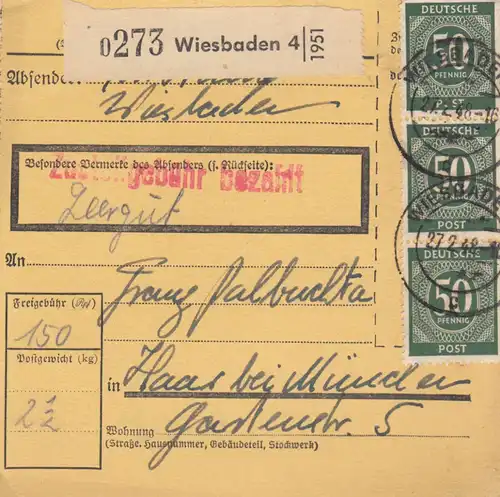 0273 Wiesbaden 4
1951
Absender:
Wiesbaden
Besondere Vermerke des Absenders (s. Rückseite):
Zustellgebühr bezahlt
Leergut
An
Franz
Freigebühr (Rpf)
150
Postgewicht (kg)
2 1/2
in Haar bei München
Gartenstr. 5
Wohnung
(Straße, Hausnummer, Gebäudeteil, Stockwerk)
DEUTSCHE
50
PFENNIG
POST
WIESBADEN
27.2.48
DEUTSCHE
50
PFENNIG
POST
WIESBADEN
27.2.48
DEUTSCHE
50
PFENNIG
POST